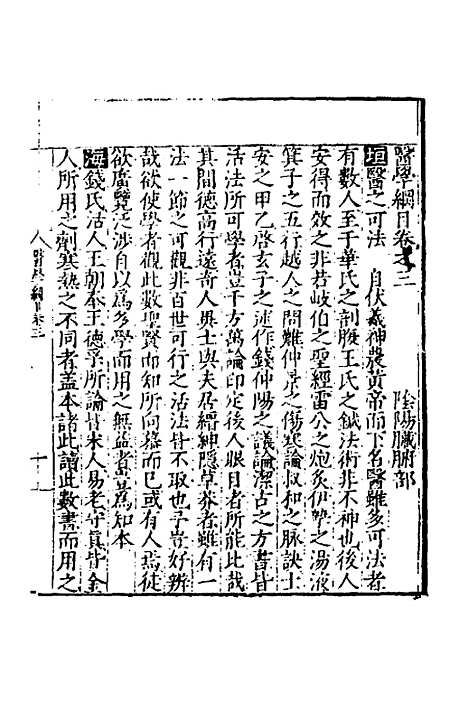 醫學綱目卷之三　陰陽臟腑部
垣醫之可法　自伏羲神農黃帝而下名醫雖多可法者
有數人至于華氏之剖腹王氏之鍼法術非不神也後人
安得而效之非若岐伯之聖經雷公之炮炙伊摯之湯液
箕子之五行越人之問難仲景之傷寒論叔和之脉訣士
安之甲乙啓玄子之述作錢仲陽之議論潔古之方書皆
活法所可學者豈千方萬論印定後人眼目者所能比哉
其間德高行遠奇人異士與夫居縉紳隱草莽者雖有一
法一節之可觀非百世可行之活法皆不取也予豈好辨
哉欲使學者觀此數聖賢而知所慕而已或有人焉徒
欲廣覽泛涉自以爲多學而用之無益者豈爲知本
海錢氏活人王朝奉王德孚所論皆宋人易老守眞皆金
人所用之劑寒熱之不同者蓋本諸此讀此數書而用之
醫學綱目卷三